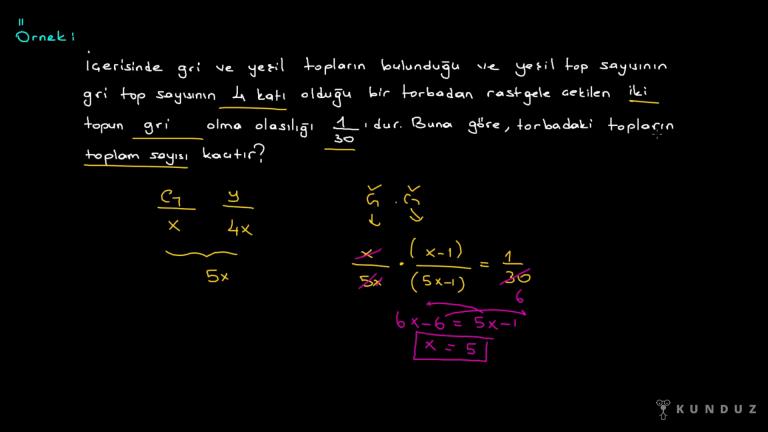 Örnek:
İçerisinde gri ve yeşil topların bulunduğu ve yeşil top sayısının
gri top sayısının 4 katı olduğu bir torbadan rastgele çekilen iki
topun gri olma olasılığı 1/30'dur. Buna göre, torbadaki topların
toplam sayısı kaçtır?
G Y
x 4x
5x
G . G
x/5x · (x-1)/(5x-1) = 1/30
6
6x-6 = 5x-1
x = 5
KUNDUZ